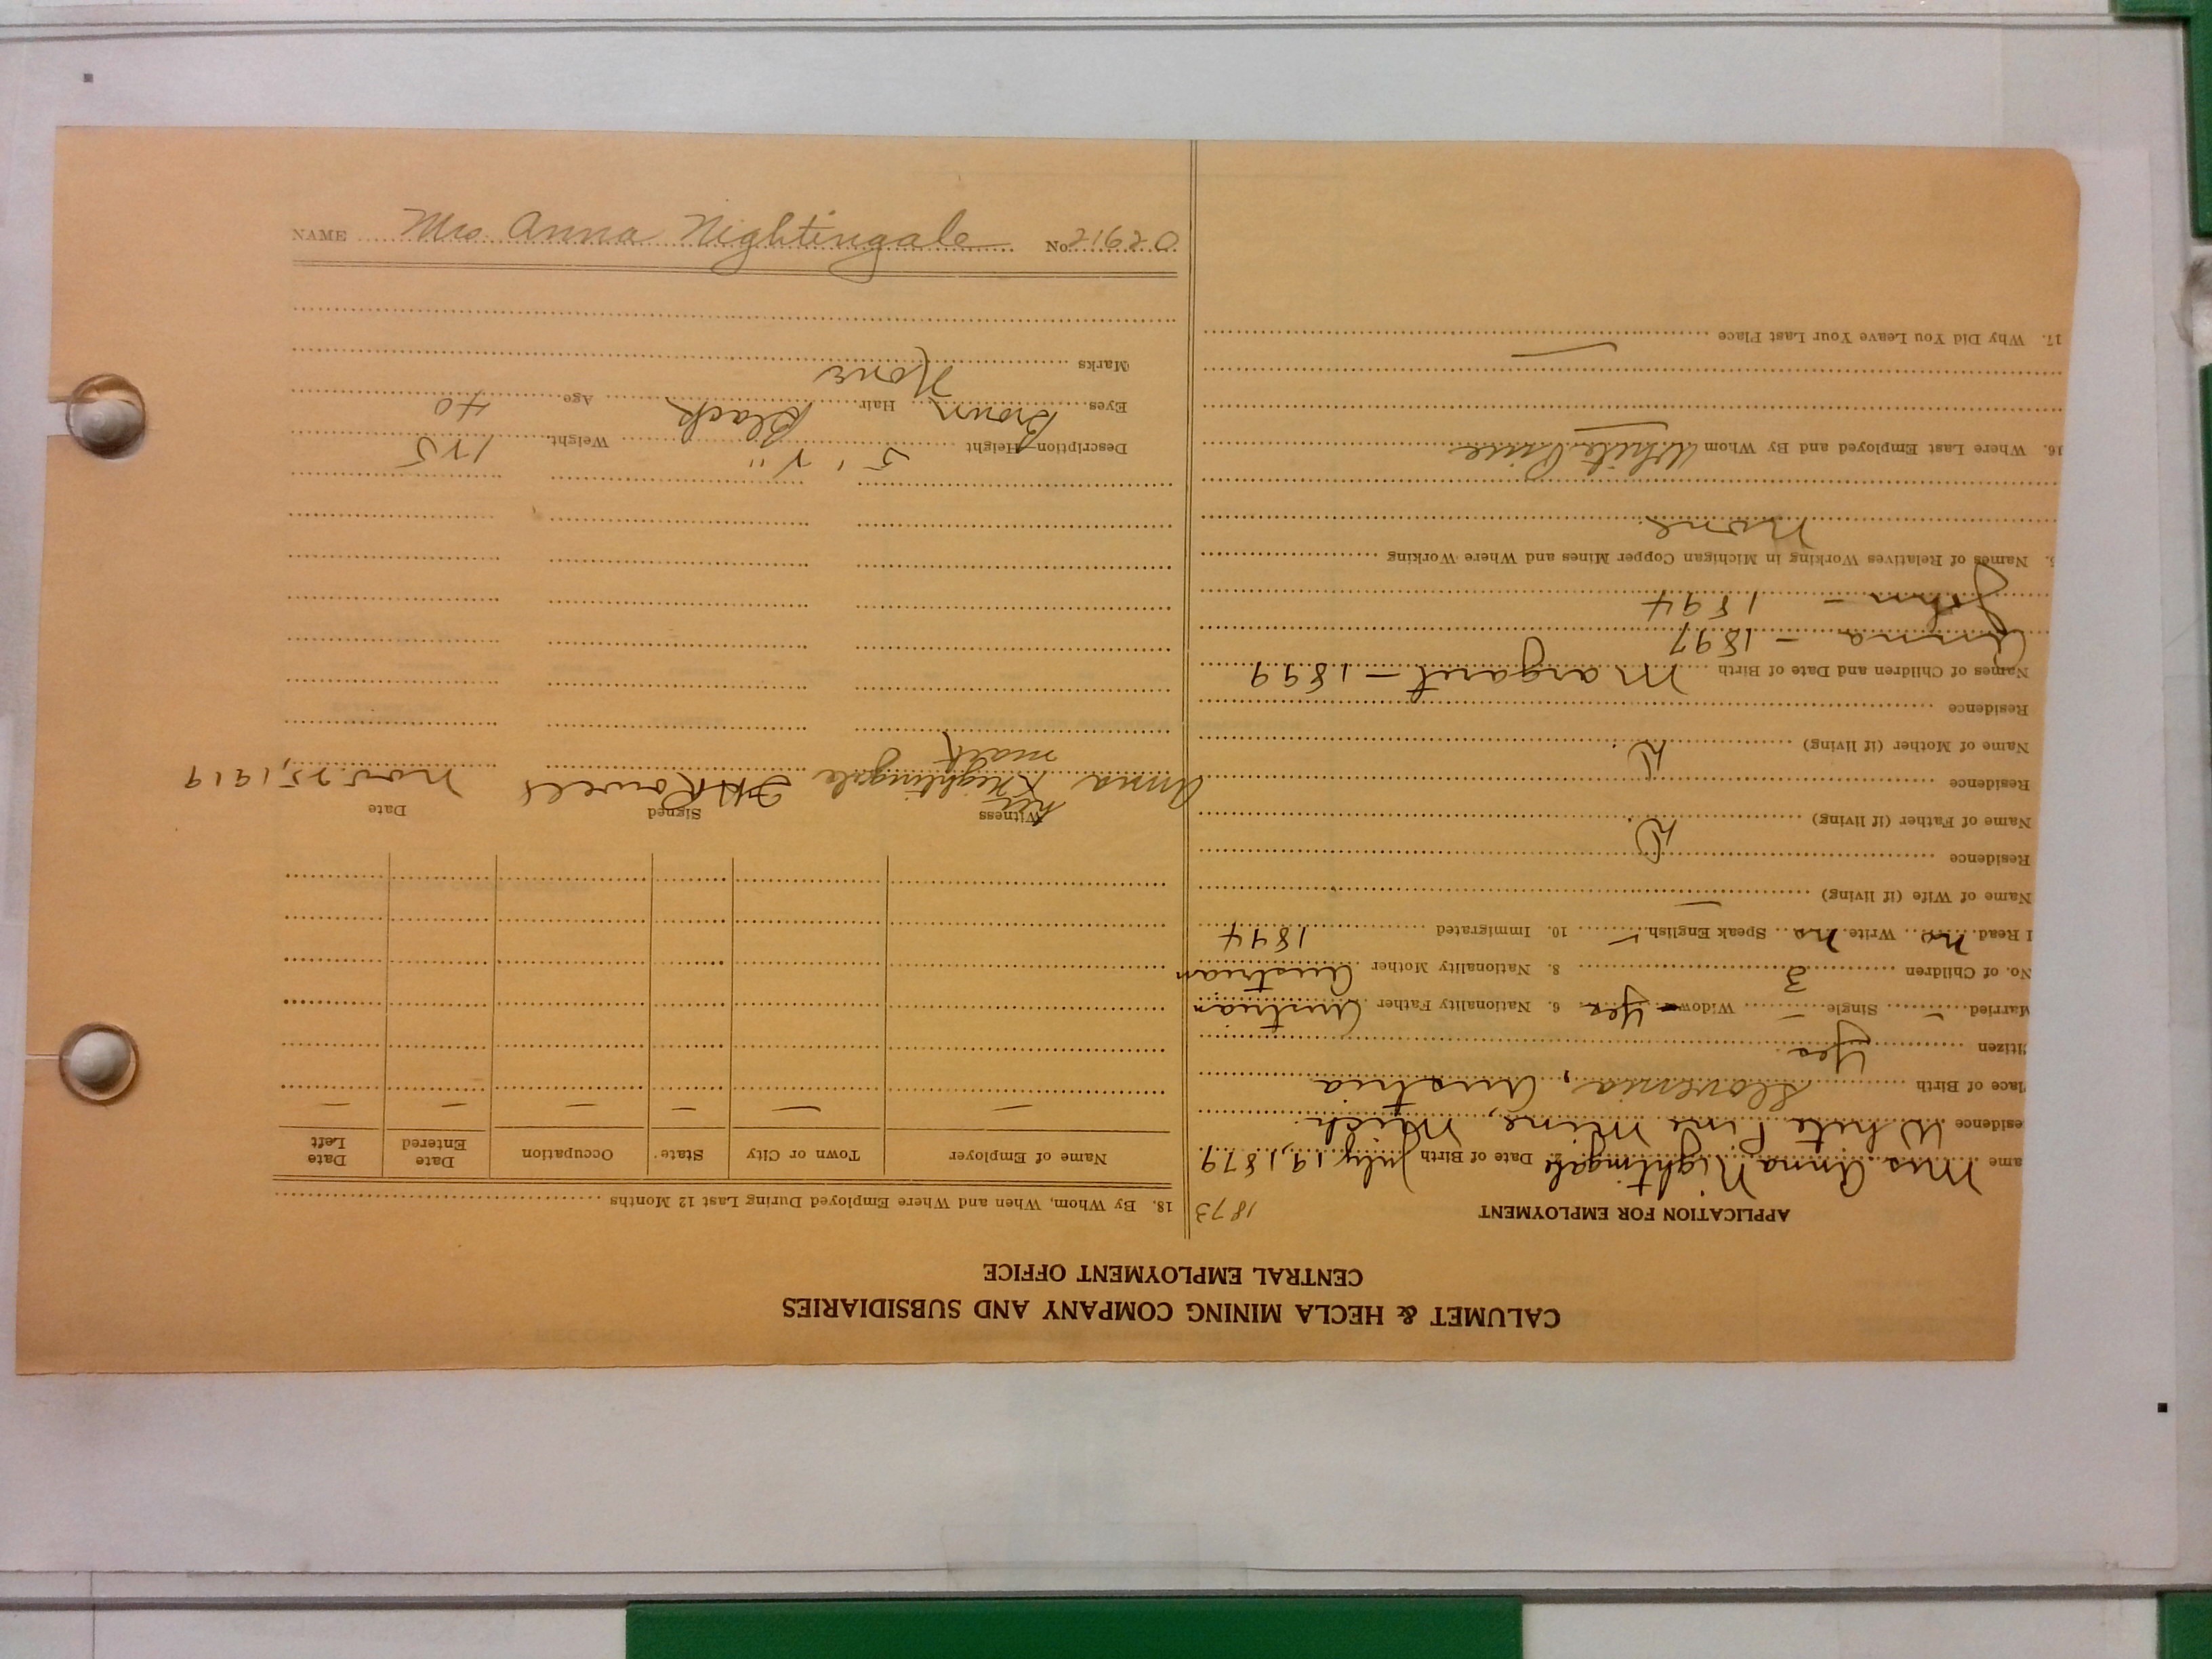 CALUMET & HECLA MINING COMPANY AND SUBSIDIARIES
CENTRAL EMPLOYMENT OFFICE
APPLICATION FOR EMPLOYMENT
1873
ame Mrs. Anna Nightingale 2. Date of Birth July 19, 1879
esidence White Pine Mine, Mich.
lace of Birth Slovenia, Austria
itizen Yes
Married – Single – Widow Yes 6. Nationality Father Austrian
No. of Children 3 8. Nationality Mother Austrian
I Read no Write no Speak English ✓ 10. Immigrated 1894
Name of Wife (if living) —
Residence
Name of Father (if living) D
Residence
Name of Mother (if living) D
Residence
Names of Children and Date of Birth Margaret – 1899
Anna – 1897
John – 1894
5. Names of Relatives Working in Michigan Copper Mines and Where Working
None
16. Where Last Employed and By Whom White Pine
17. Why Did You Leave Your Last Place —
18. By Whom, When and Where Employed During Last 12 Months
Name of Employer Town or City State Occupation Date Entered Date Left
— — — — — —
Witness Signed Date
her
Anna X Nightingale Rowels Nov. 25, 1919
mark
Description—Height 5' 2" Weight 125
Eyes Brown Hair Black Age 40
Marks None
NAME Mrs Anna Nightingale No. 21620